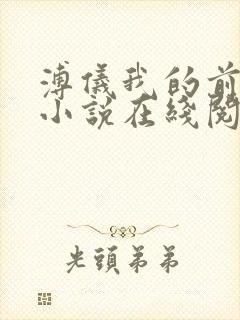 溥儀我的前
小說在綫閱
光頭弟弟